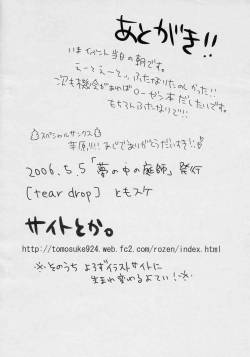 あとがき!!
いまイベント当日の朝です。
えーとえーとぉ、ふたなりたのしかった!!
次も機会があればローゼン本だしたいです。
もちろんふたなりで!!
スペシャルサンクス
ありがとうだいすき!!
2006.5.5「夢の中の庭師」発行
[tear drop] ともスケ
サイトとか。
http://tomosuke924.web.fc2.com/rozen/index.html
※そのうち よろずイラストサイトに
生まれ変わるよてい!※